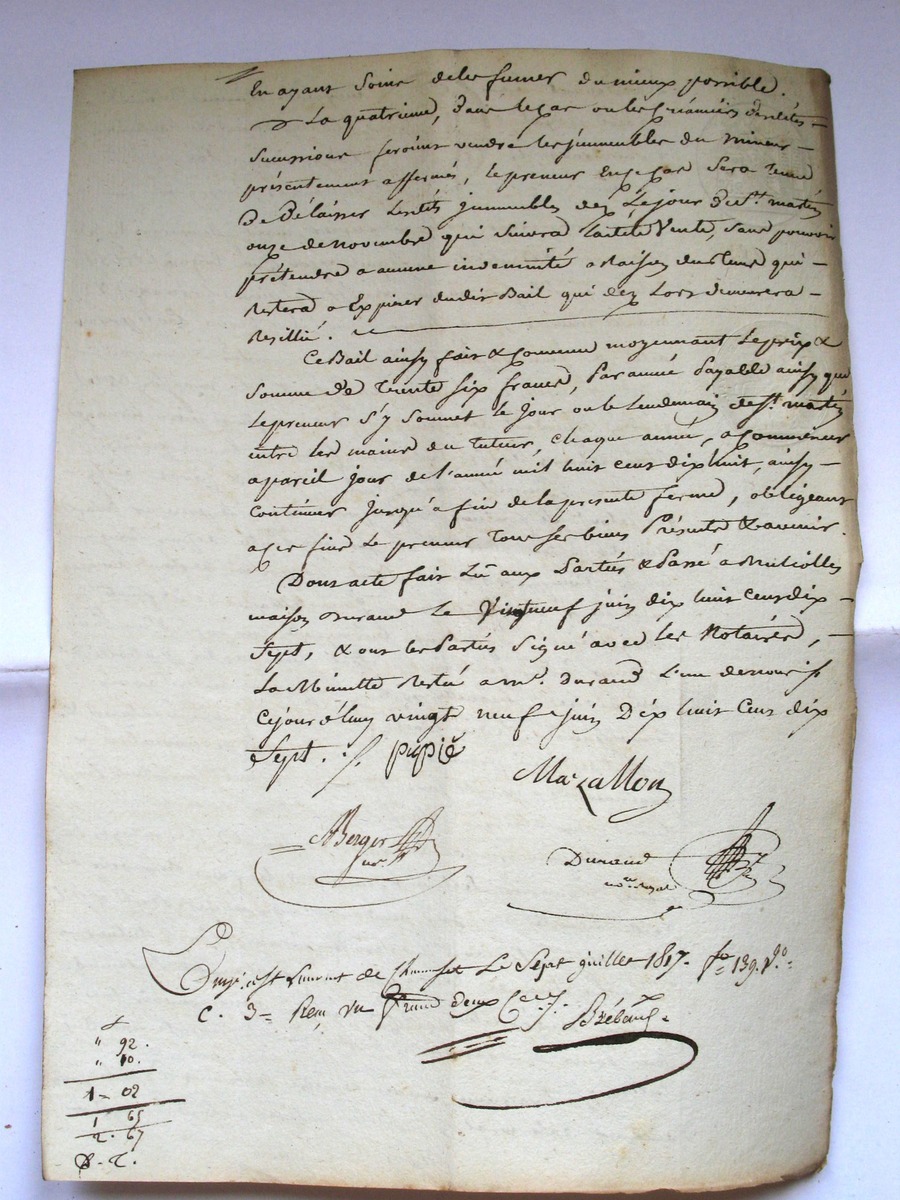 En ayant soins de les fumer du mieux possible.
La quatrieme, dans le cas ou les créanciers desdites
successions feroint vendre les jmmeubles du mineur
présentement affermés, le preneur en ce cas sera tenu
de délaisser lesdits jmmeubles dez le jour de St. martin
onze de novembre qui suivra ladite vente, sans pouvoir
prétendre a aucune indemnité a raison du tems qui
restera a Expirer dudit Bail qui dez lors demeurera
Resillié.
Ce Bail ainsy fait & Convenu moyennant le prix &
somme de trente six francs, par année payable ainsy que
le preneur s'y soumet le jour ou le lendemain de St. martin
entre les mains du tuteur, chaque année, a commencer
a pareil jour de l'année mil huit cent dix huit, ainsy
continuer jusqu'a fin de la presente ferme, obligeant
a ces fins le preneur tous ses biens Présents & avenir.
Dont acte fait Lû aux Parties & Passé a
maison Durand le Vingt neuf juin dix huit cent dix
sept, & ont les Parties signé avec les Notaires,
La Minutte restée a mr. Durand l'un de nous
Cejourd'huy vingt neuf juin Dix huit Cent dix
Sept. pupié
Mazallon
Berger
nre
Durand
nore royal
Enrgé a St Laurent de Chamousset Le Sept juillet 1817. fo 139. Vo.
C. 3= Reçu un franc deux Ces.
" 92.
" 10.
1 - 02
1 65
2. 67